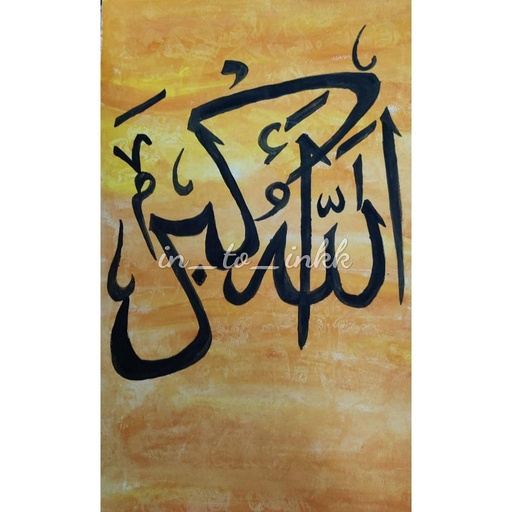 الله أكبر
in_to_inkk